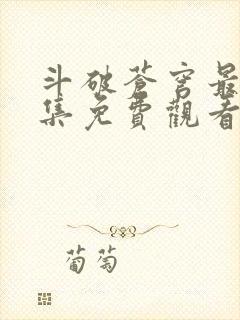 斗破蒼穹最
集免費觀看
葡萄